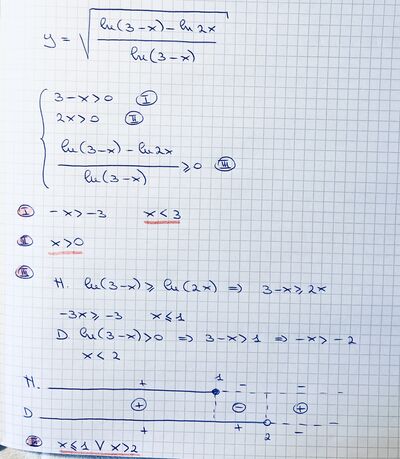 y = √((ln(3-x) - ln 2x) / ln(3-x))
{ 3-x>0 Ⓘ
2x>0 Ⓘ︎Ⓘ
(ln(3-x) - ln 2x) / ln(3-x) ≥0 III
I -x>-3 x<3
II x>0
III
N. ln(3-x) ≥ ln(2x) ⇒ 3-x≥2x
-3x≥-3 x≤1
D ln(3-x)>0 ⇒ 3-x>1 ⇒ -x>-2
x<2
N. + 1 - -
⊕ ⊖ ⊕
D + + 2 -
III x≤1 ∨ x>2